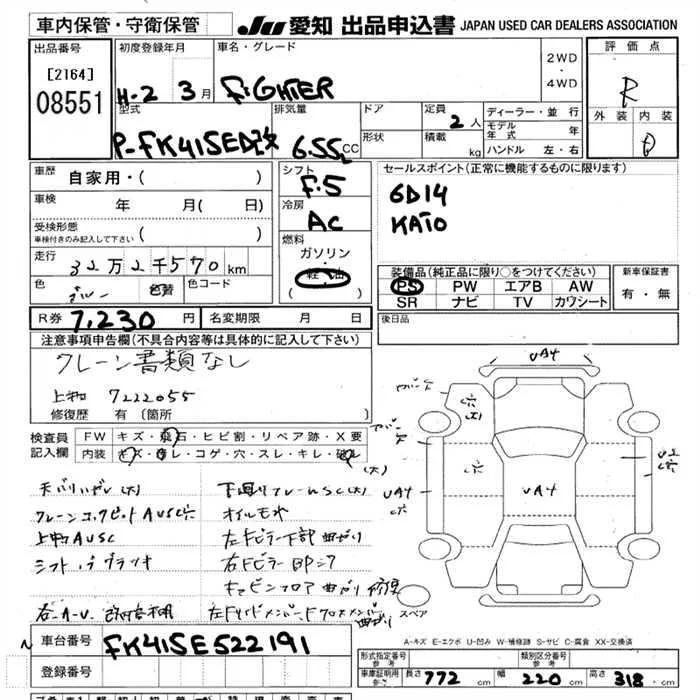 車内保管・守衛保管
JU 愛知 出品申込書 JAPAN USED CAR DEALERS ASSOCIATION
出品番号
[2164]
08551
初度登録年月
H-2 3月
車名・グレード
FiGHTER
2WD
・
4WD
評価点
R
外装 内装
D
型式
P-FK415ED改
排気量
6.55L CC
ドア
形状
定員
2人
積載
kg
ディーラー・並行
モデル年式 年
ハンドル 左・右
車歴
自家用・( )
車検
年 月( 日)
受検形態
車検付きのみ記入して下さい
( )
走行
32万2千570km
色
ブルー
色替
色コード
シフト
F.5
冷房
AC
燃料
ガソリン
・
軽油
( )
セールスポイント(正常に機能するものに限ります)
6D14
KATO
装備品(純正品に限り○をつけてください)
PS PW エアB AW
SR ナビ TV カワシート
新車保証書
有・無
R券 7,230円
名変期限 月 日
後日品
注意事項申告欄(不具合内容等は具体的に記入して下さい)
クレーン書類なし
上物 7222055
修復歴 有(箇所
検査員
記入欄
FW キズ・飛石・ヒビ割・リペア跡・X要
内装 キズ・汚レ・コゲ・穴・スレ・キレ・破レ
(大)
天バリハガレ(大)
下廻りフレームSC(大)
クレーンコックピットAUSC穴
オイルモレ
上物AUSC
左Fピラー下部曲がり
右Fピラー
キャビンフロア曲がり修復
UA4
UA4
UA4
スペア
A-キズ E-エクボ U-凹み W-補修跡 S-サビ C-腐食 XX-交換済
車台番号
FK415E522191
登録番号
形式指定番号
参考
類別区分番号
参考
車庫証明用
参考
長さ 772 cm
幅 220 cm
高さ 318 cm